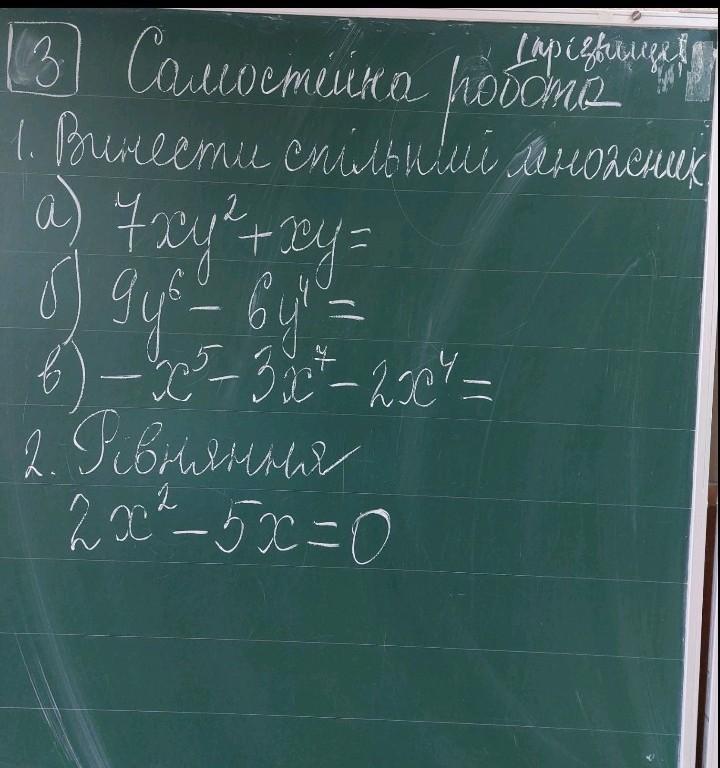 3 Самостійна робота (прізвище)
1. Винести спільний множник
а) 7xy² + xy =
б) 9y⁶ − 6y⁴ =
в) − x⁵ − 3x⁷ − 2x⁴ =
2. Рівняння
2x² − 5x = 0